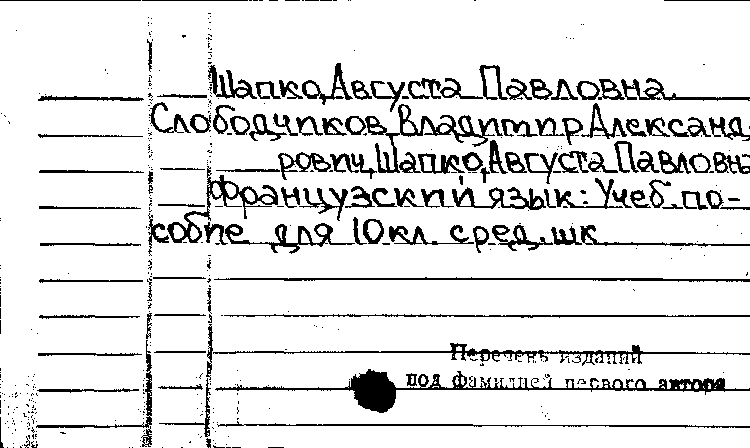 Шапко, Августа Павловна.
Слободчиков, Владимир Александ
рович, Шапко, Августа Павловна
Французский язык: Учеб. по-
собие для 10 кл. сред. шк.
Перечень изданий
под фамилией первого автора